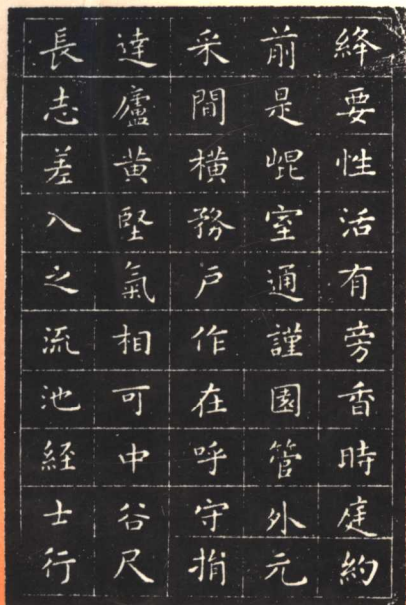 絳要性活有旁香時庭約
前是崐室通謹園管外元
采間橫務戶作在呼守捐
達廬黃堅氣相可中谷尺
長志差入之流池経士行